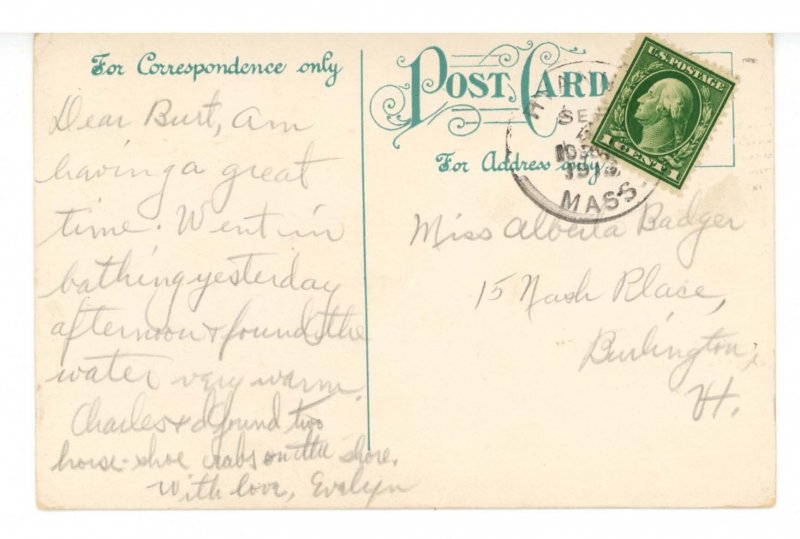 For Correspondence only
Dear Burt, am
having a great
time. Went in
bathing yesterday
afternoon & found the
water very warm.
Charles & I found two
horse-shoe crabs on the shore.
With love, Evelyn
POST CARD
For Address only
SE
MASS.
U.S. POSTAGE
1 CENT 1
Miss Alberta Badger
15 Nash Place,
Burlington,
Vt.